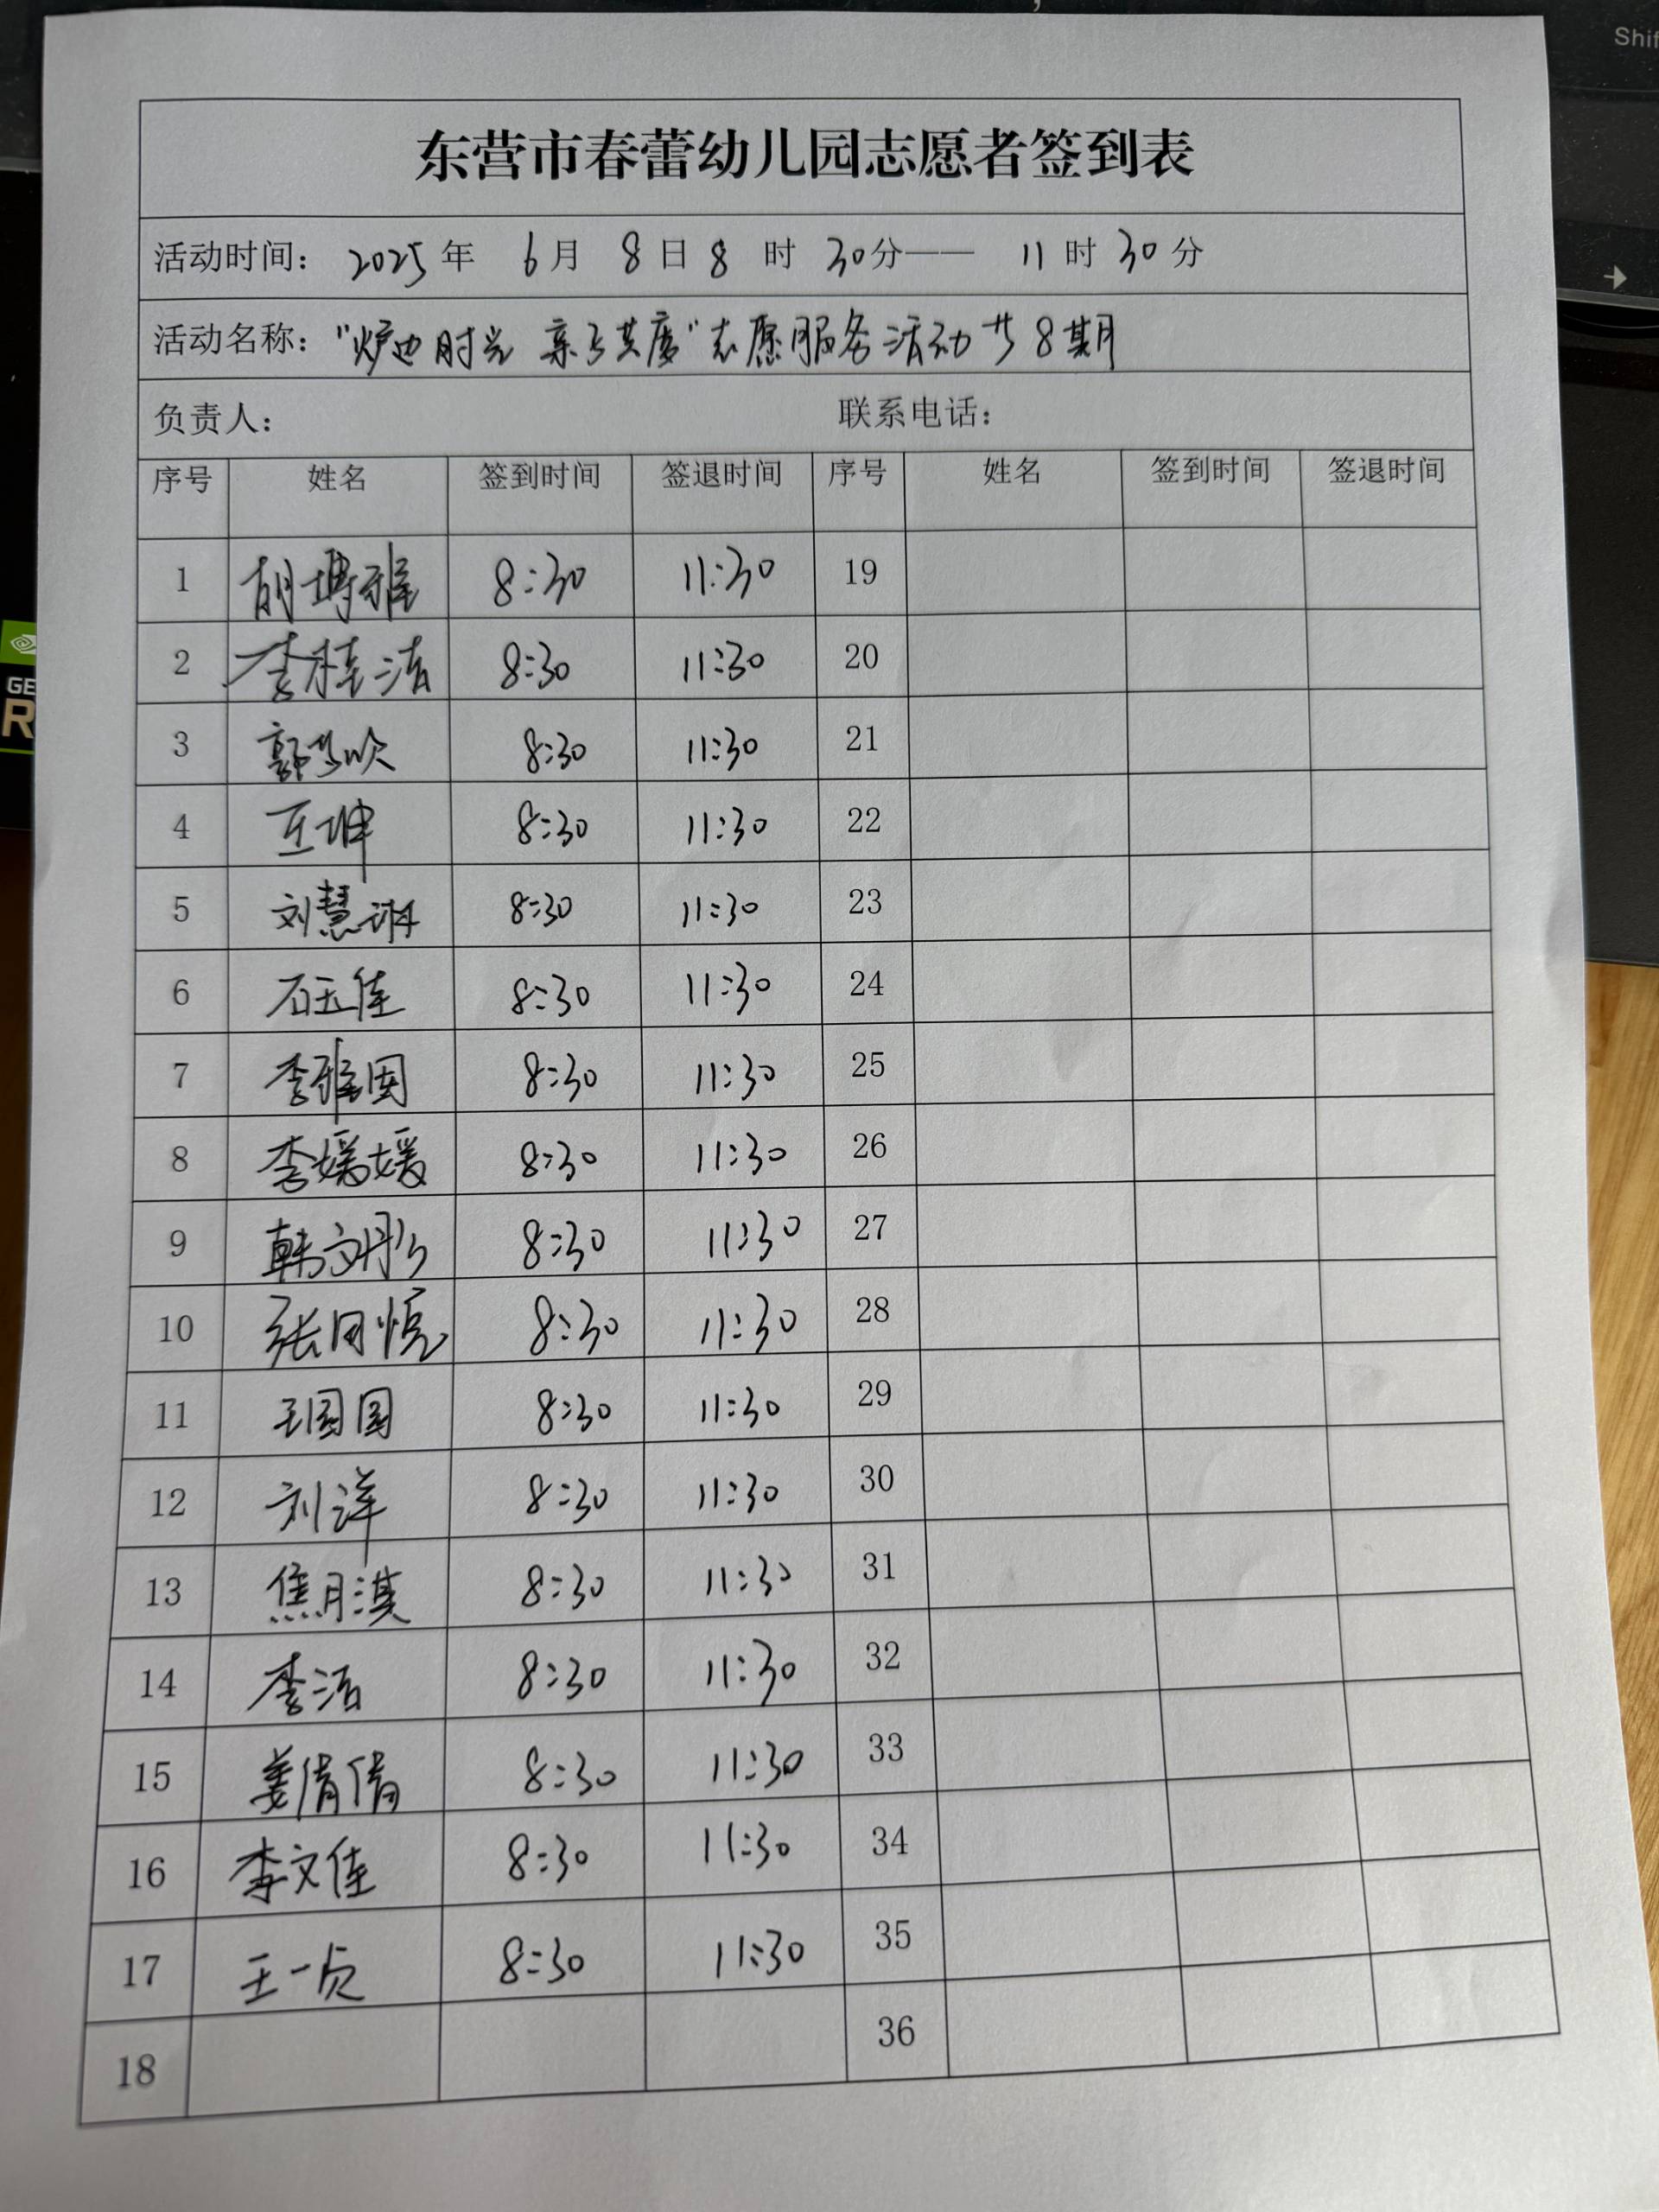 Shif
东营市春蕾幼儿园志愿者签到表
活动时间: 2025年 6月 8日 8 时 30分—— 11时 30分
活动名称: "炉边时光 亲子共度"志愿服务活动 共 8期
负责人: 联系电话:
序号 姓名 签到时间 签退时间 序号 姓名 签到时间 签退时间
1 胡博雅 8:30 11:30 19
2 李桂洁 8:30 11:30 20
3 郭 8:30 11:30 21
4 坤 8:30 11:30 22
5 刘慧琳 8:30 11:30 23
6 石玉佳 8:30 11:30 24
7 李雅 8:30 11:30 25
8 李媛媛 8:30 11:30 26
9 韩文彤 8:30 11:30 27
10 张月悦 8:30 11:30 28
11 王圆圆 8:30 11:30 29
12 刘洋 8:30 11:30 30
13 焦月淇 8:30 11:30 31
14 李洁 8:30 11:30 32
15 姜倩倩 8:30 11:30 33
16 李文佳 8:30 11:30 34
17 王一贞 8:30 11:30 35
18 36
GE
R